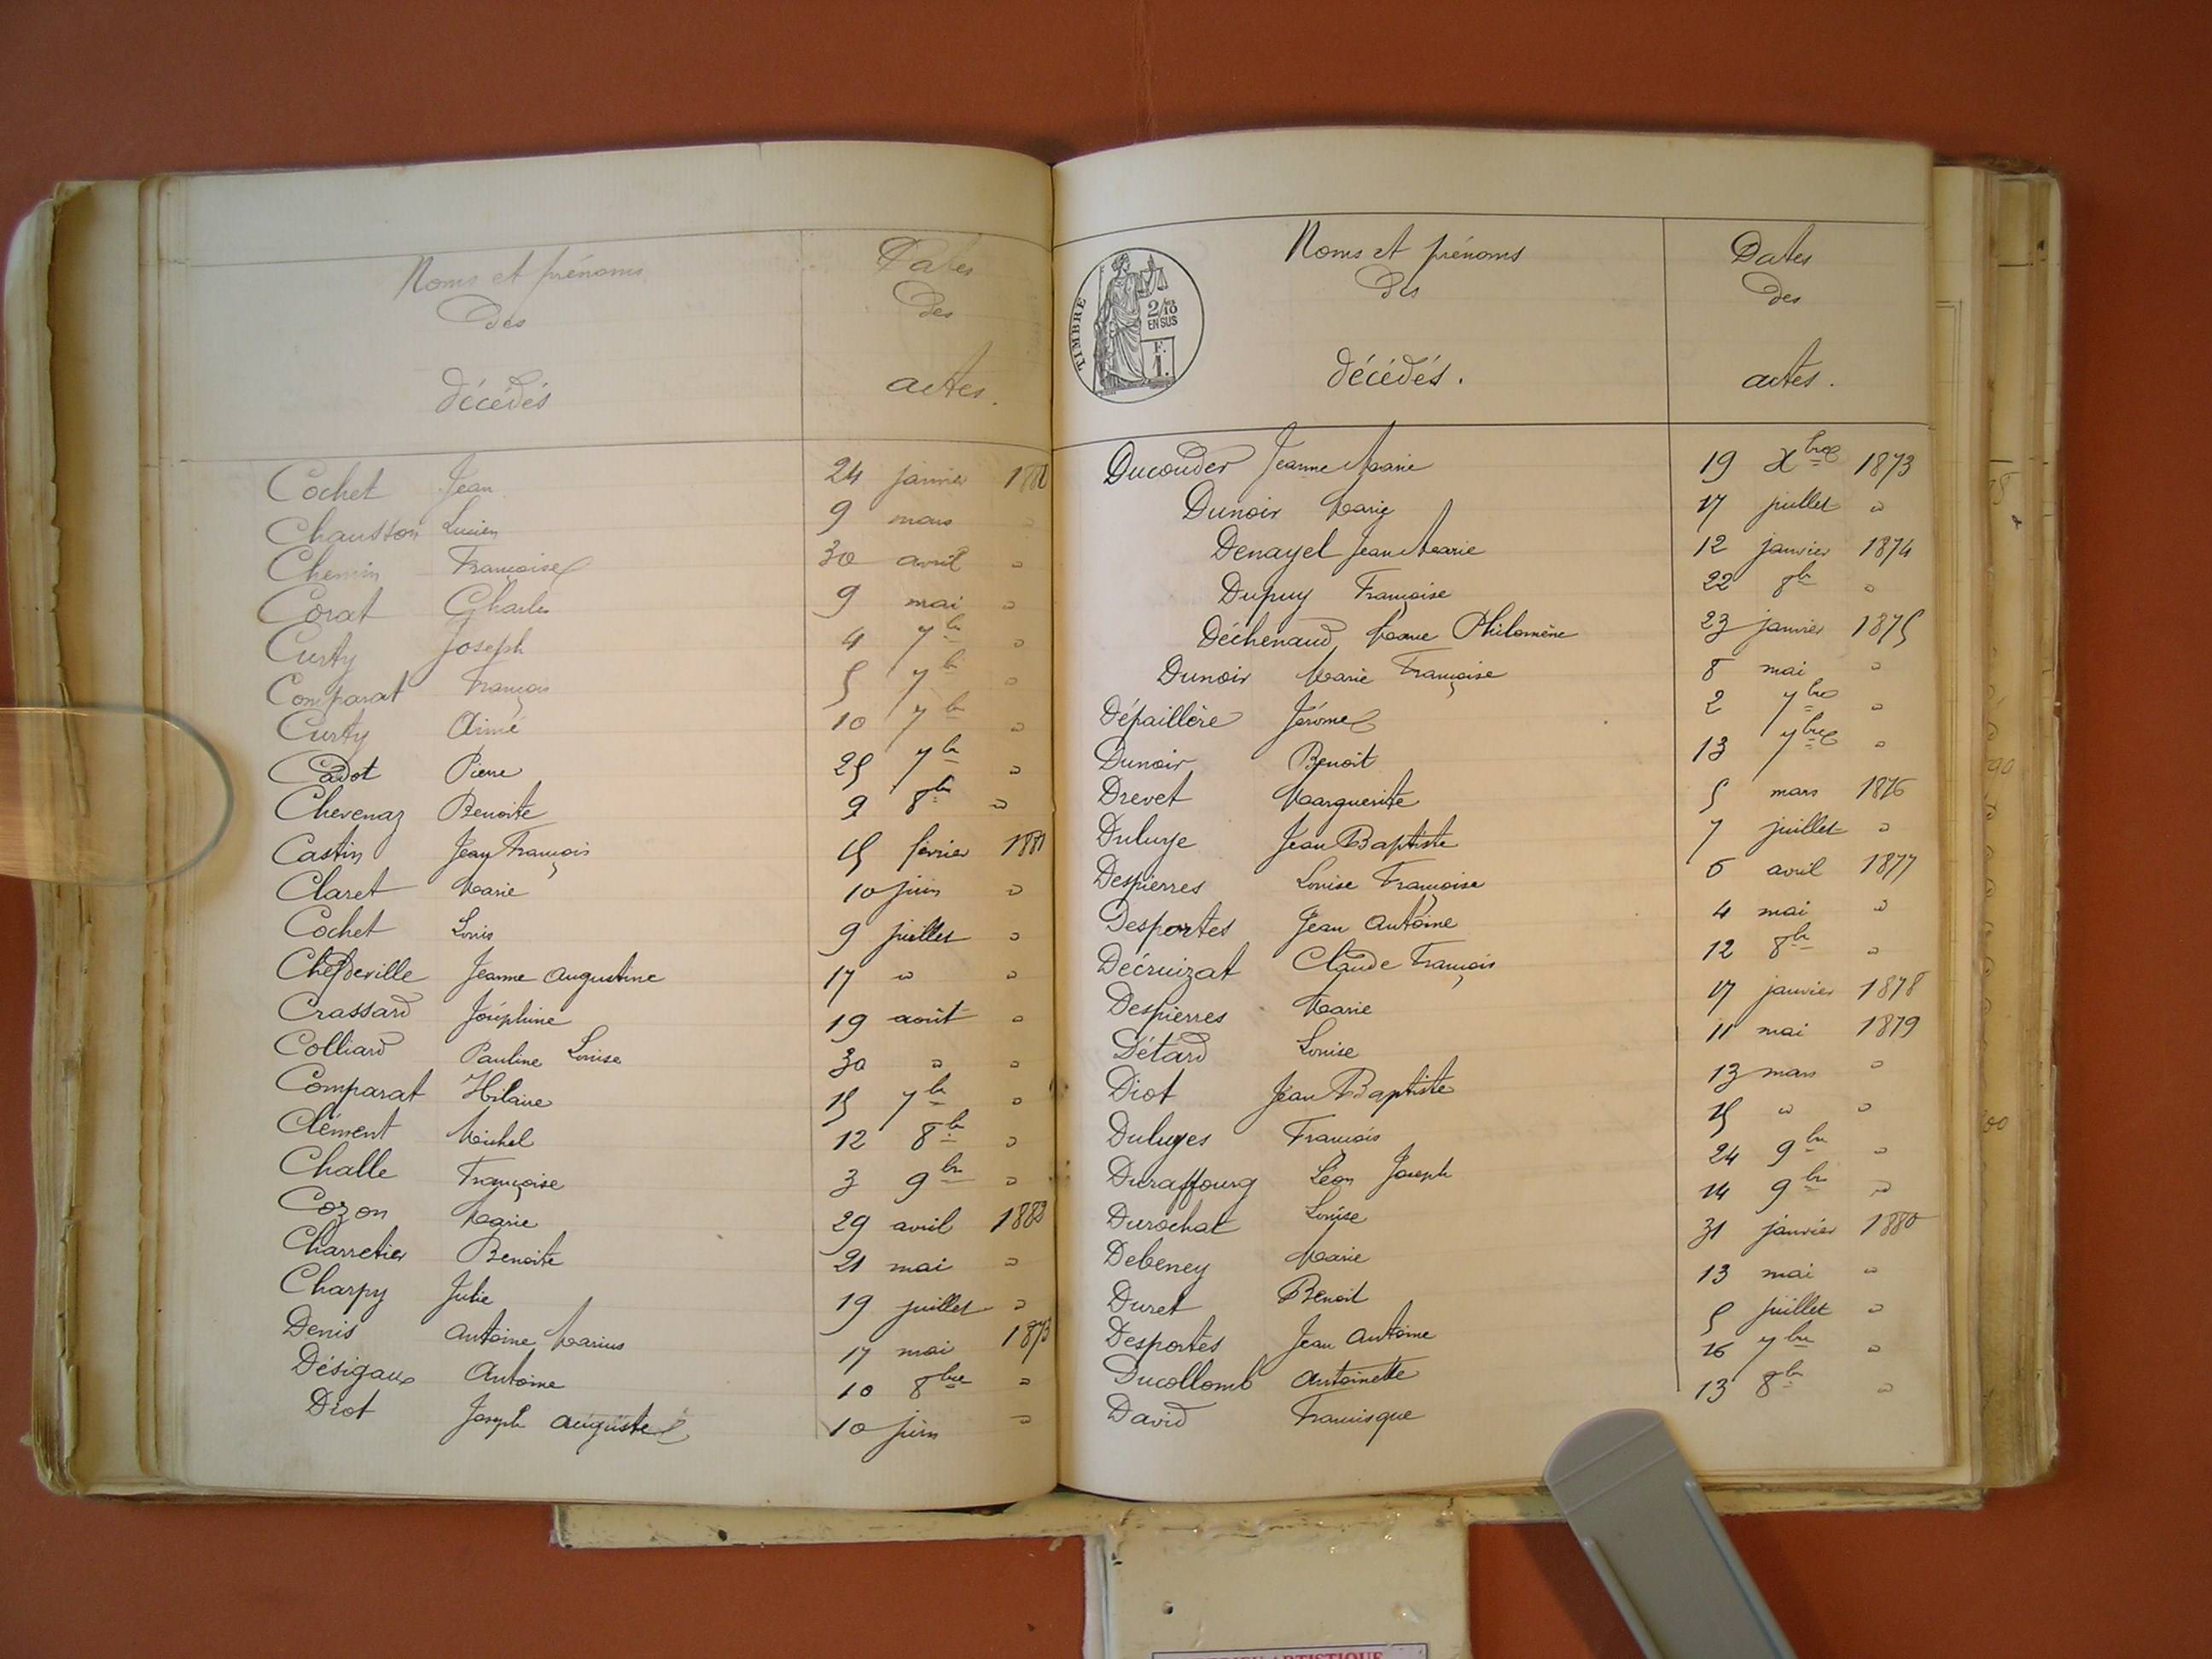 Noms et prénoms
des
décédés
Dates
des
actes.
Cochet Jean 24 janvier 1880
Chausson Lucien 9 mars "
Chemin Françoise 30 avril "
Corat Charles 9 mai "
Curty Joseph 4 7bre "
Comparat François 5 7bre "
Curty Aimé 10 7bre "
Cadot Pierre 25 7bre "
Chevenaz Benoite 9 8bre "
Castin Jean François 15 février 1881
Claret Marie 10 juin "
Cochet Louis 9 juillet "
Chefdeville Jeanne Augustine 17 " "
Crassard Joséphine 19 août "
Colliard Pauline Louise 30 " "
Comparat Hilaire 15 7bre "
Clément Michel 12 8bre "
Challe Françoise 3 9bre "
Cozon Marie 29 avril 1882
Charretier Benoite 21 mai "
Charpy Julie 19 juillet "
Denis Antoine Marius 17 mai 1873
Désigaux Antoine 10 8bre "
Diot Joseph Auguste 10 juin "
TIMBRE
2/10
EN SUS
F.
1.
Noms et prénoms
des
décédés.
Dates
des
actes.
Ducouder Jeanne Marie 19 Xbre 1873
Dunoir Marie 17 juillet "
Denayel Jean Marie 12 janvier 1874
Dupuy Françoise 22 8bre "
Déchenaud Marie Philomène 23 janvier 1875
Dunoir Marie Françoise 8 mai "
Dépaillère Jérôme 2 7bre "
Dunoir Benoit 13 7bre "
Drevet Marguerite 5 mars 1876
Duluye Jean Baptiste 7 juillet "
Despierres Louise Françoise 6 avril 1877
Desportes Jean Antoine 4 mai "
Décruizat Claude François 12 8bre "
Despierres Marie 17 janvier 1878
Détard Louise 11 mai 1879
Diot Jean Baptiste 13 mars "
Duluyes François 15 " "
Duraffourg Léon Joseph 24 9bre "
Durochat Louise 14 9bre "
Debeney Marie 31 janvier 1880
Duret Benoit 13 mai "
Desportes Jean Antoine 5 juillet "
Ducollomb Antoinette 16 7bre "
David Francisque 13 8bre "